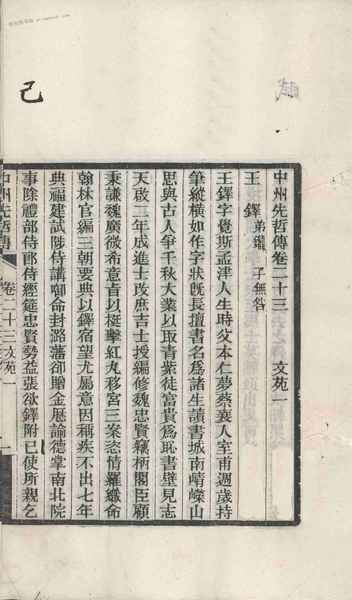 己
中州先哲傳卷二十三 文苑一
王鐸 弟鑨 子無咎
王鐸字覺斯孟津人生時父本仁夢蔡襄入室甫週歲持
筆縱橫如作字狀既長擅書名爲諸生讀書城南崝嶸山
思與古人爭千秋大業以取青紫徒富貴爲恥書壁見志
天啟二年成進士改庶吉士授編修魏忠賢竊柄閣臣顧
秉謙魏廣微希意旨以梃擊紅丸移宮三案恣情羅織命
翰林官編三朝要典以鐸宿望尤屬意因稱疾不出七年
典福建試陟侍講啣命封潞藩卻贈金歷諭德掌南北院
事除禮部侍郎侍經筵忠賢勢益張欲鐸附已使所親乞
中州先哲傳 卷二十三文苑一